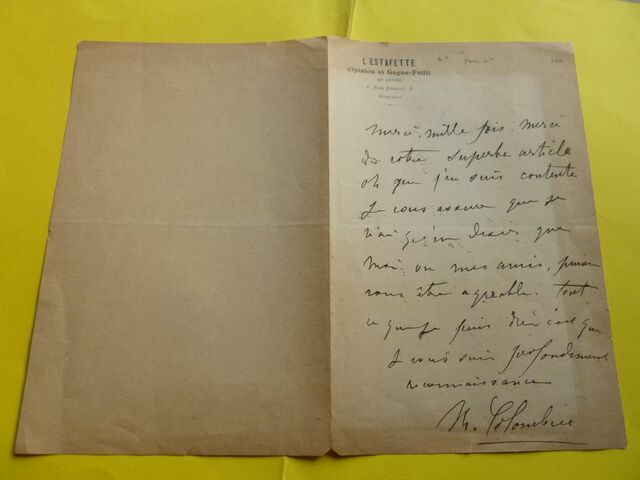 L'ESTAFETTE
(Opinion et Gagne-Petit)
Paris le
188
merci mille fois merci
de votre superbe article
oh que j'en suis contente
Je vous assure que je
n'ai qu'un desir que
moi ou mes amis, puissions
vous être agreable. Tout
ce que je puis dire c'est que
je vous suis profondement
reconnaissance
M. Colombier